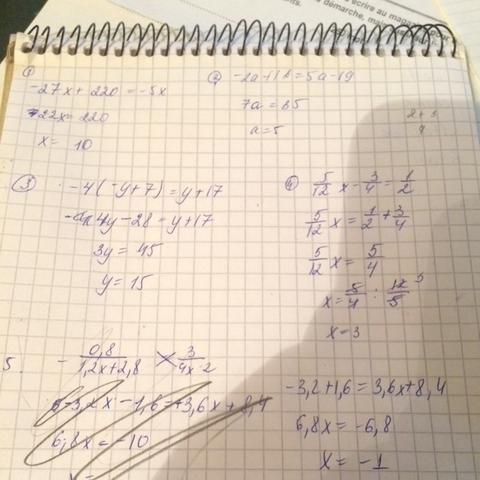 écrire au magazine
démarche, mai
ents.
①
-27x + 220 = -5x
22x = 220
x = 10
②
-2a + 16 = 5a - 19
7a = 35
a = 5
③
-4(-y+7) = y+17
4y - 28 = y+17
3y = 45
y = 15
④
5/12 x - 3/4 = 1/2
5/12 x = 1/2 + 3/4
5/12 x = 5/4
x = 5/4 : 12/5
x = 3
5.
- 0,8/(1,2x+2,8) 3/(4x-2)
6,8x = -10
x =
-3,2+1,6 = 3,6x+8,4
6,8x = -6,8
x = -1